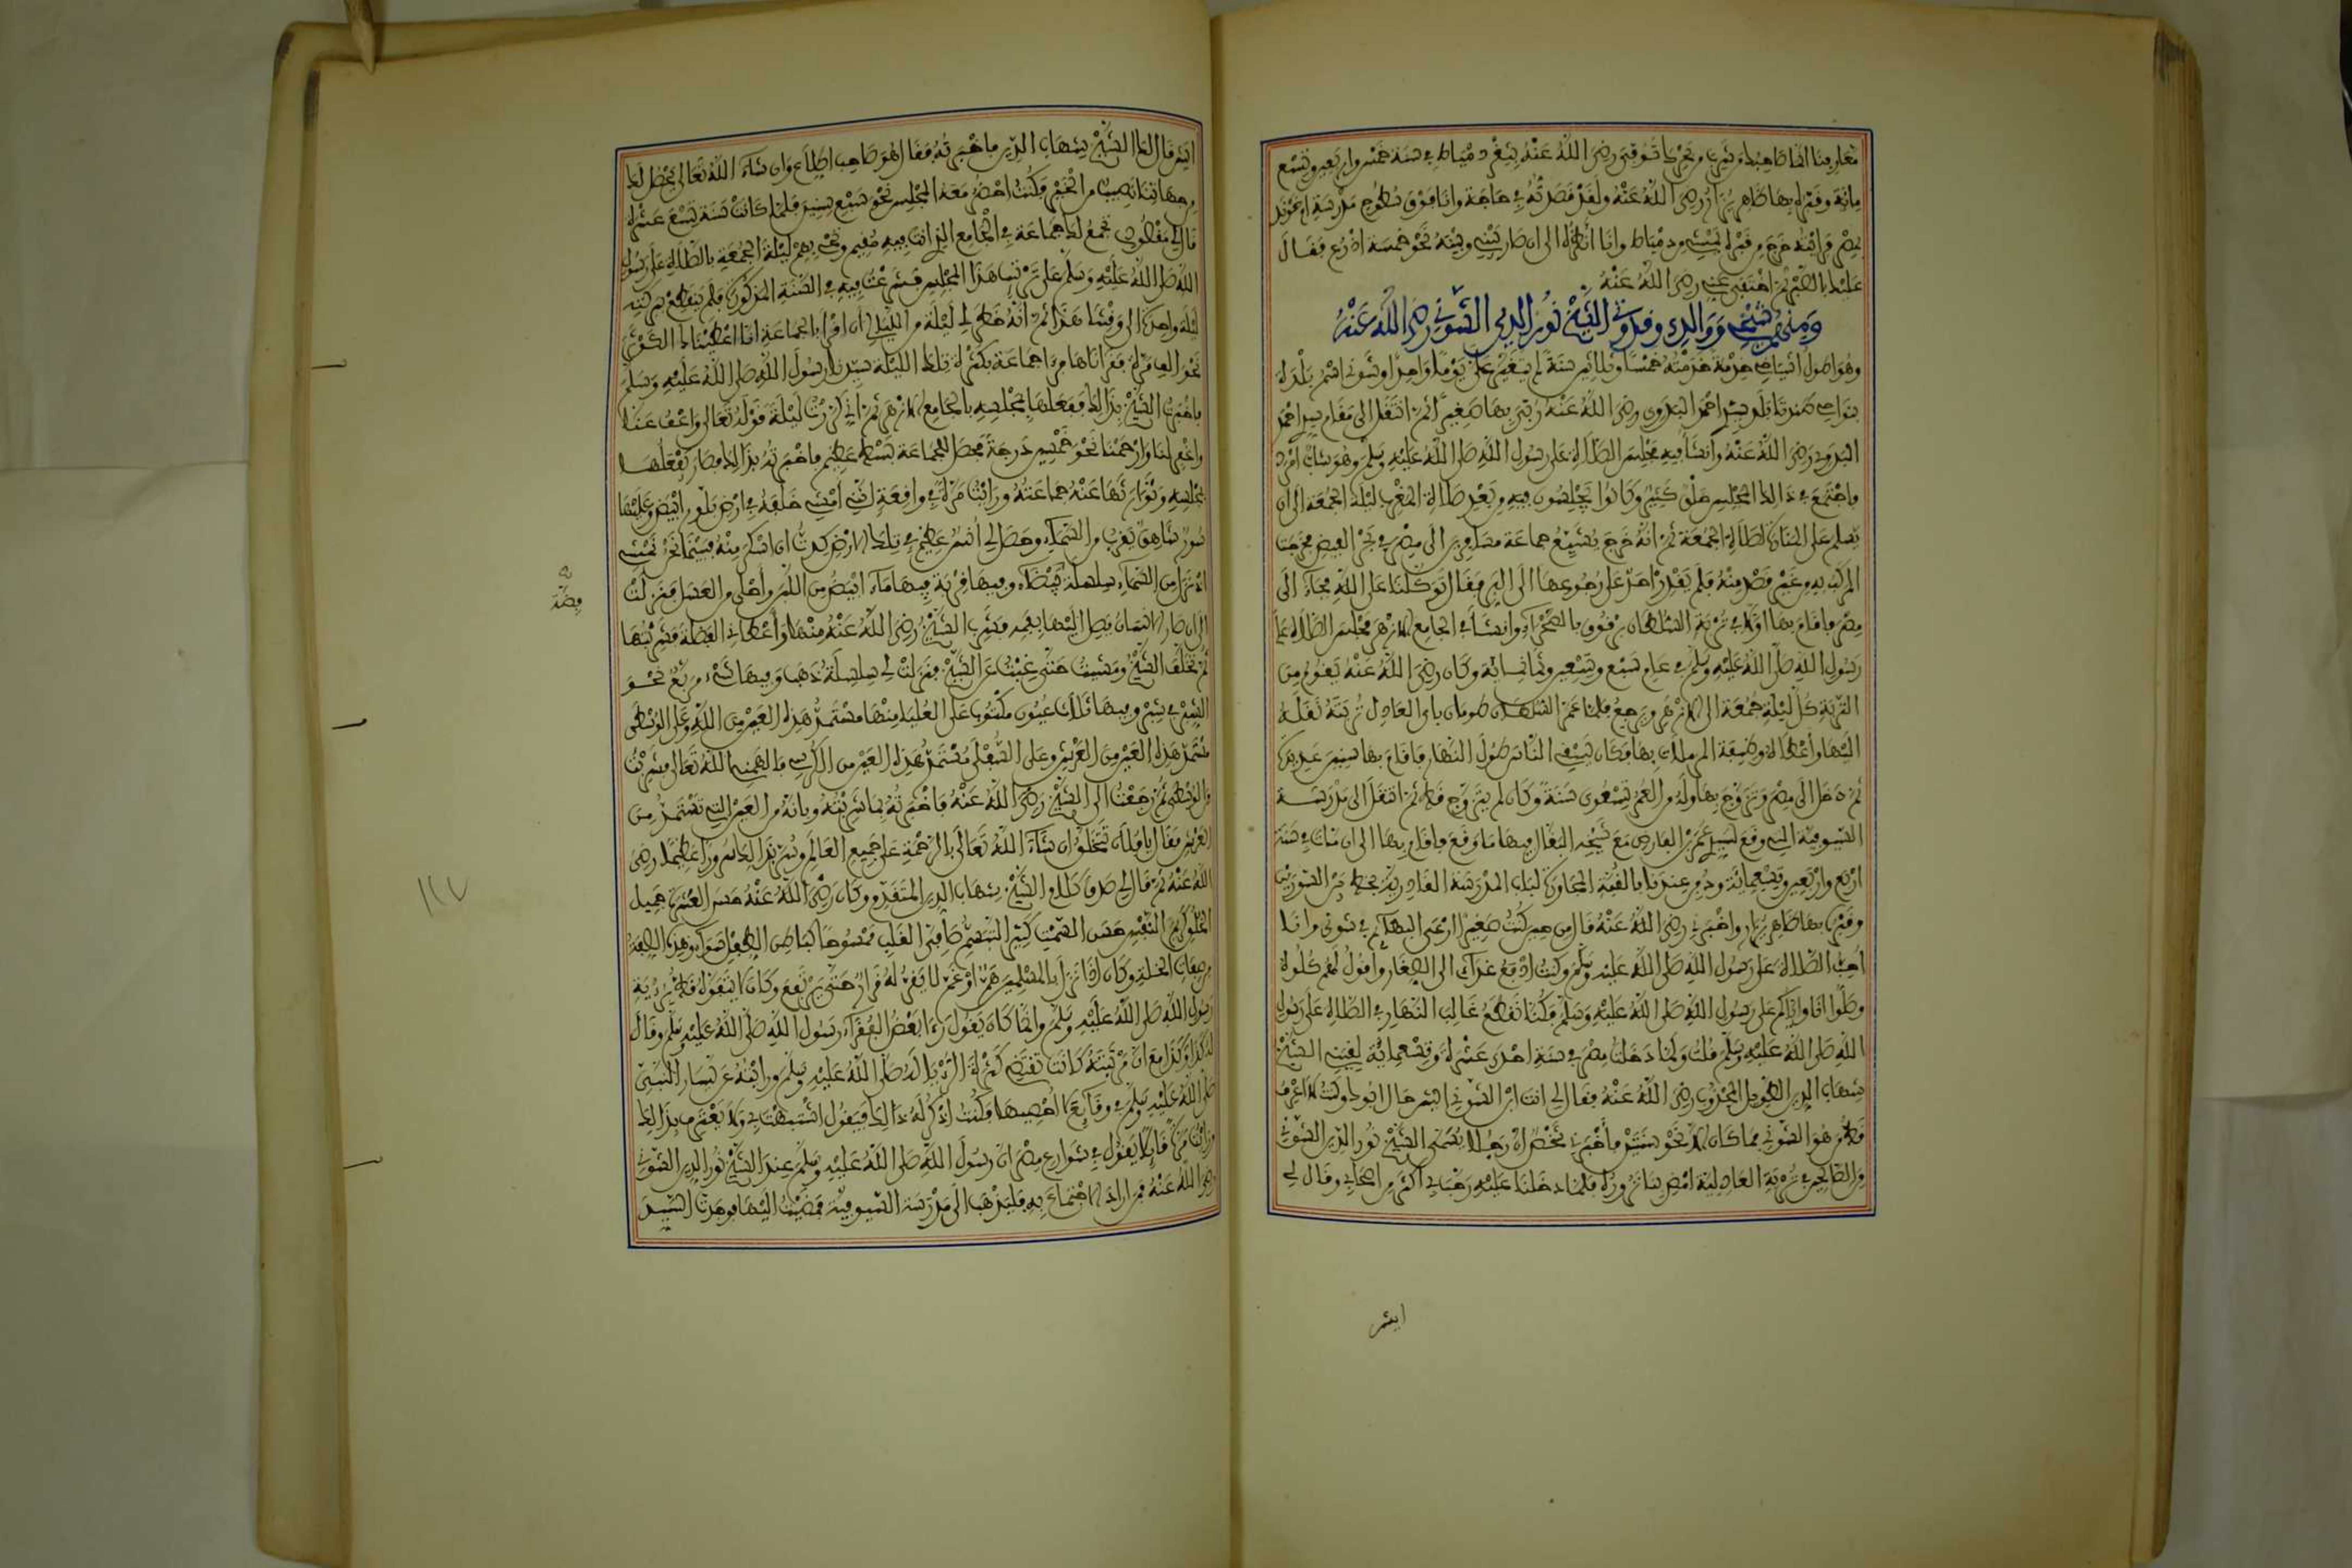 معارفنا انها صاحبة وتربي وتحرك توفي رضي الله عنه بثغر دمياط في سنة خمس واربعين وتسع
مائة وقبره بها ظاهر يزار رضي الله عنه ولقد قصدته في حاجة وانا فوق سطوح مدرسة ام خوند
بمصر فرايته خرج من قبره يمشي من دمياط وانا انظره الى ان صار بيني وبينه نحو خمسة اذرع فقال
عليك بالصبر ثم اختفى عني رضي الله عنه
ومنهم شيخي ووالدي وقدوتي الشيخ نور الدين الشوني رضي الله عنه
وهو اطول اشياخي خدمة خدمته خمسا وثلاثين سنة لم يتغير علي يوما واحدا وشوني اسم بلدة
بنواحي طندتا بلد سيدي احمد البدوي رضي الله عنه ربي بها صغيرا ثم انتقل الى مقام سيدي احمد
البدوي رضي الله عنه وانشا فيه مجلس الصلاة على رسول الله صلى الله عليه وسلم وهو شاب امرد
فاجتمع في ذالك المجلس خلق كثير وكانوا يجلسون فيه من بعد صلاة المغرب ليلة الجمعة الى ان
يسلم على المنارة لصلاة الجمعة ثم انه خرج يشيع جماعة مسافرين الى مصر في بحر الفيض فخرجت
المركب به من غير قصد منه فلم يقدر احد على رجوعها الى البر فقال توكلنا على الله فجاء الى
مصر فاقام بها اولا في تربة السلطان برقوق بالصحراء وانشا في الجامع الازهر مجلس الصلاة على
رسول الله صلى الله عليه وسلم في عام سبع وتسعين وثمانمائة وكان رضي الله عنه يقوم من
التربة كل ليلة جمعة الى الازهر ويرجع فلما عمر السلطان طومان باي العادل تربته نقله
اليها واعطاه وظيفة المزملاتي بها وكان يسقي الناس طول النهار فاقام بها سنين عديدة
ثم دخل الى مصر وتزوج بها وله من العمر تسعون سنة وكان لم يتزوج قط ثم انتقل الى مدرسة
السيوفية التي وقع لسيدي عمر بن الفارض مع شيخه البقال فيها ما وقع فاقام بها الى ان مات في سنة
اربع واربعين وتسعمائة ودفن عندنا بالقبة المجاورة لباب المدرسة القادرية بخط بين السورين
وقبره بها ظاهر يزار واخبرني رضي الله عنه قال من حين كنت صغيرا ارعى البهائم في شوني وانا
احب الصلاة على رسول الله صلى الله عليه وسلم وكنت ادفع غدائي الى الصغار واقول لهم كلوه
وصلوا انا واياكم على رسول الله صلى الله عليه وسلم فكنا نقطع غالب النهار في الصلاة على رسول
الله صلى الله عليه وسلم قلت ولما دخلت مصر في سنة احدى عشرة وتسعمائة لقيني الشيخ
شهاب الدين الطويل المجذوب رضي الله عنه فقال لي انت ابن الشوني ايش حال ابوك وكنت لا اعرف
قط من هو الشوني فما كان الا نحو سنتين فاخبرني شخص ان رجلا يسمى الشيخ نور الدين الشوني
من الصالحين في تربة العادلية امض بنا نزوره فلما دخلنا عليه رحب بي اكثر من اصحابي وقال لي
ايش
ايش قال لك الشيخ شهاب الدين فاخبرته فقال هو صاحب اطلاع وان شاء الله تعالى يحصل لك
من جهاتنا نصيب من الخير وكنت احضر معه المجلس نحو سبع سنين فلما كانت سنة تسع عشرة
قال لي مقصودي تجمع لك جماعة في الجامع الذي انت فيه مقيم وتحيي بهم ليلة الجمعة بالصلاة على رسول
الله صلى الله عليه وسلم على ترتيب هذا المجلس فشرعت فيه في السنة المذكورة فلم ينقطع ببركته
ليلة واحدة الى وقتنا هذا ثم انه خطر لي ليلة من الليالي ان اقرا بالجماعة انا اعطيناك الكوثر
نحو الف مرة فقراناها فراى جماعة بكثرة تلك الليلة سيدنا رسول الله صلى الله عليه وسلم
فاخبرت الشيخ بذالك ففعلها بمجلسه بالجامع الازهر ثم اني كررت ليلة قوله تعالى واعف عنا
واغفر لنا وارحمنا نحو خمسين درجة فحصل للجماعة بسط عظيم فاخبرته بذالك فصار يفعلها
بمجلسه وتوارثها عنه جماعته ورايت مرة في واقعة اني امشي خلفه في ارض بلور ابيض وعليها
سور شاهق يقرب من السماء وحصل لي انس عظيم في تلك الارض كدت ان اسكر منه فبينما نحن نمشي
اذ نزل من السماء سلسلة بيضاء وفيها قربة فيها ماء ابيض من اللبن واحلى من العسل فنزلت
الى ان صار الانسان يصل اليها بفمه فشرب الشيخ رضي الله عنه منها واعطاني الفضلة فشربتها
ثم تخلف الشيخ ومشيت حتى غبت عن الشيخ فنزلت لي سلسلة ذهب وفيها شيء مربع نحو
الشبر في شبر وفيها ثلاث عيون مكتوب على العليا منها مستمد هذه العين من الله وعلى الوسطى
مستمد هذه العين من العرش وعلى السفلى مستمد هذه العين من الكرسي فالهمني الله تعالى فشربت
من الوسطى ثم رجعت الى الشيخ رضي الله عنه فاخبرته بما شربته وبانه من العين التي تستمد من
العرش فقال يا فلان تتخلق ان شاء الله تعالى بالرحمة على جميع العالم وسر بذالك سرورا عظيما رضي
الله عنه ثم قال لي صدق كلام الشيخ شهاب الدين المتقدم وكان رضي الله عنه حسن العشرة جميل
الخلق كريم النفس حسن السمت كثير التبسم صافي القلب ممسوحا كباطن الطفل سواء وهذه الصفة
من صفات الخلة وكان اذا نزل بالمسلمين هم او غم لا يقر له قرار حتى يرتفع وكان لا يتفوه قط برؤية
رسول الله صلى الله عليه وسلم وانما كان يقول راى بعض الفقراء رسول الله صلى الله عليه وسلم وقال
له كذا وكذا مع ان مرتبته كانت تقتضي كثرة الرؤيا له صلى الله عليه وسلم ورايته عن يسار النبي
صلى الله عليه وسلم في وقائع لا احصيها فكنت اذكر له ذالك فيقول اشتبهت بي ولا يعترف بذالك
ورايت مرة قائلا يقول في شوارع مصر ان رسول الله صلى الله عليه وسلم عند الشيخ نور الدين الشوني
رضي الله عنه فمن اراد الاجتماع به فليذهب الى مدرسة السيوفية فمضيت اليها فوجدت السيد
فضة